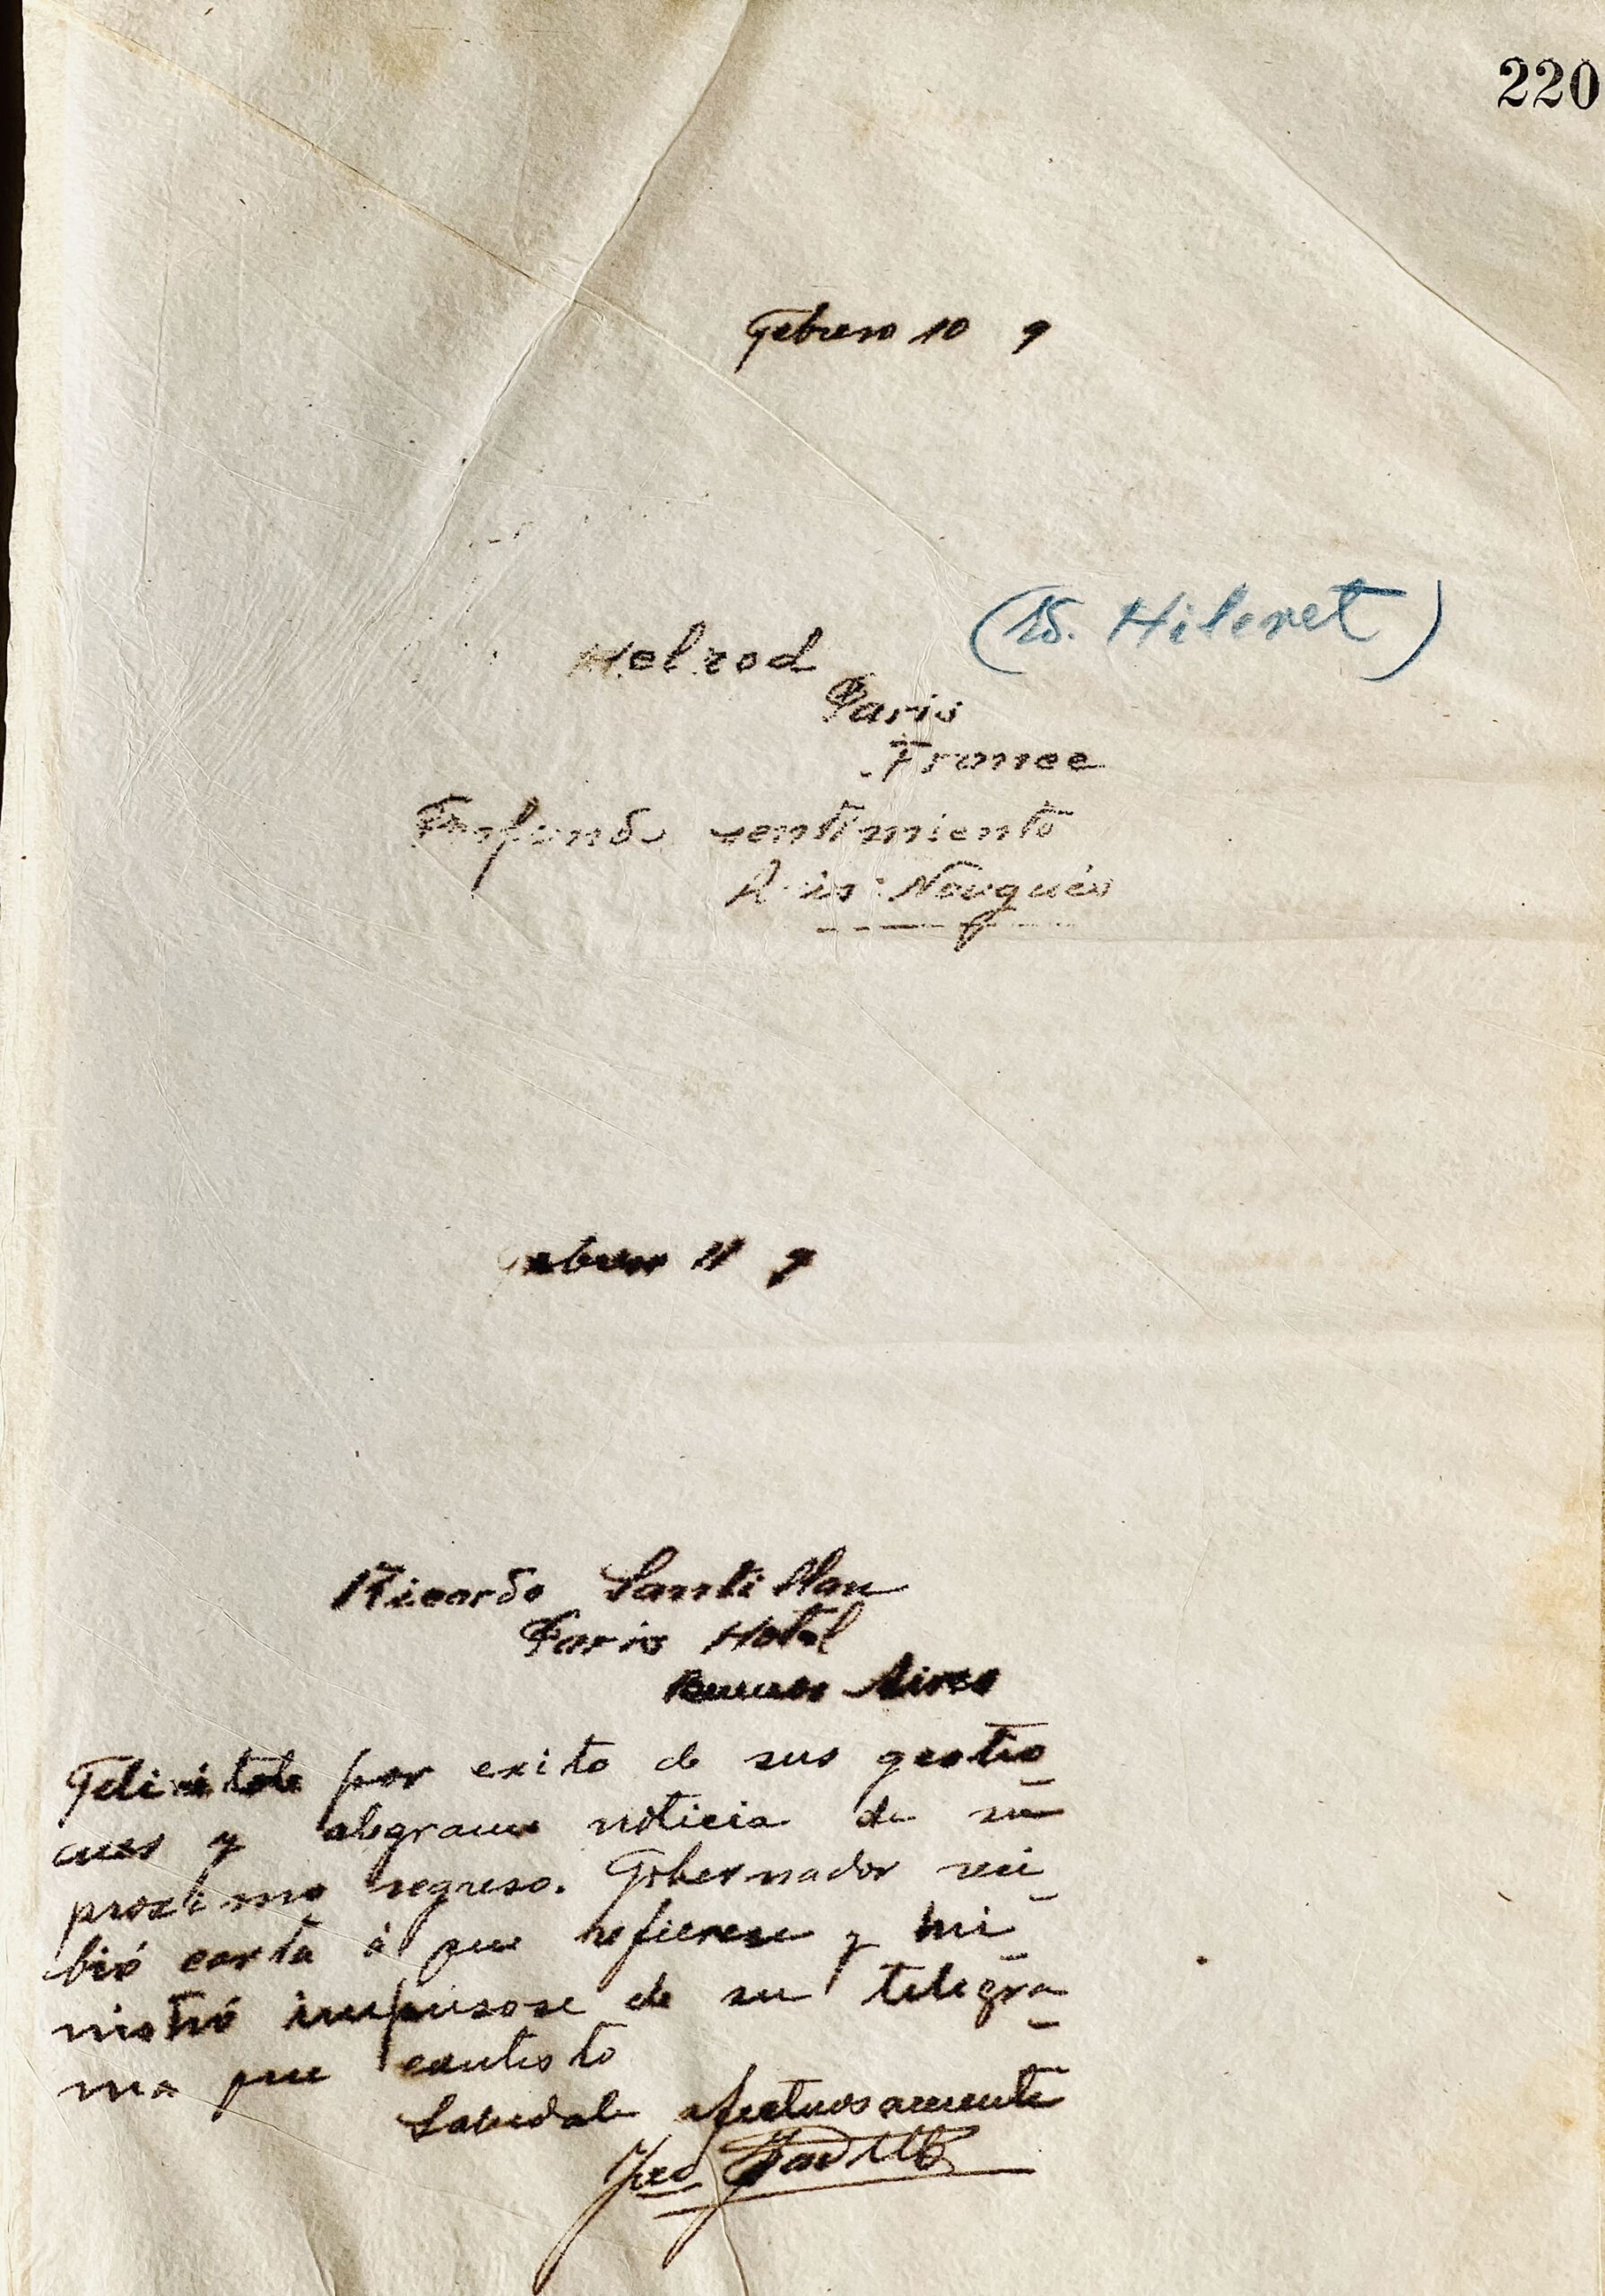 220
Febrero 10 9
(Ed. Hileret)
Helrod
Paris
France
Profundo sentimiento
Luis Nougués
Febrero 11 9
Ricardo Santillan
Paris Hotel
Buenos Aires
Felicitole por exito de sus gestio_
nes y alegrame noticia de su
proximo regreso. Gobernador reci_
bió carta á que refierese y mi_
nistró impusose de su telegra_
ma que contesto
Saludale afectuosamente
José Padilla